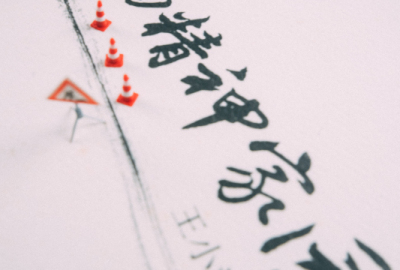 精神家
王小